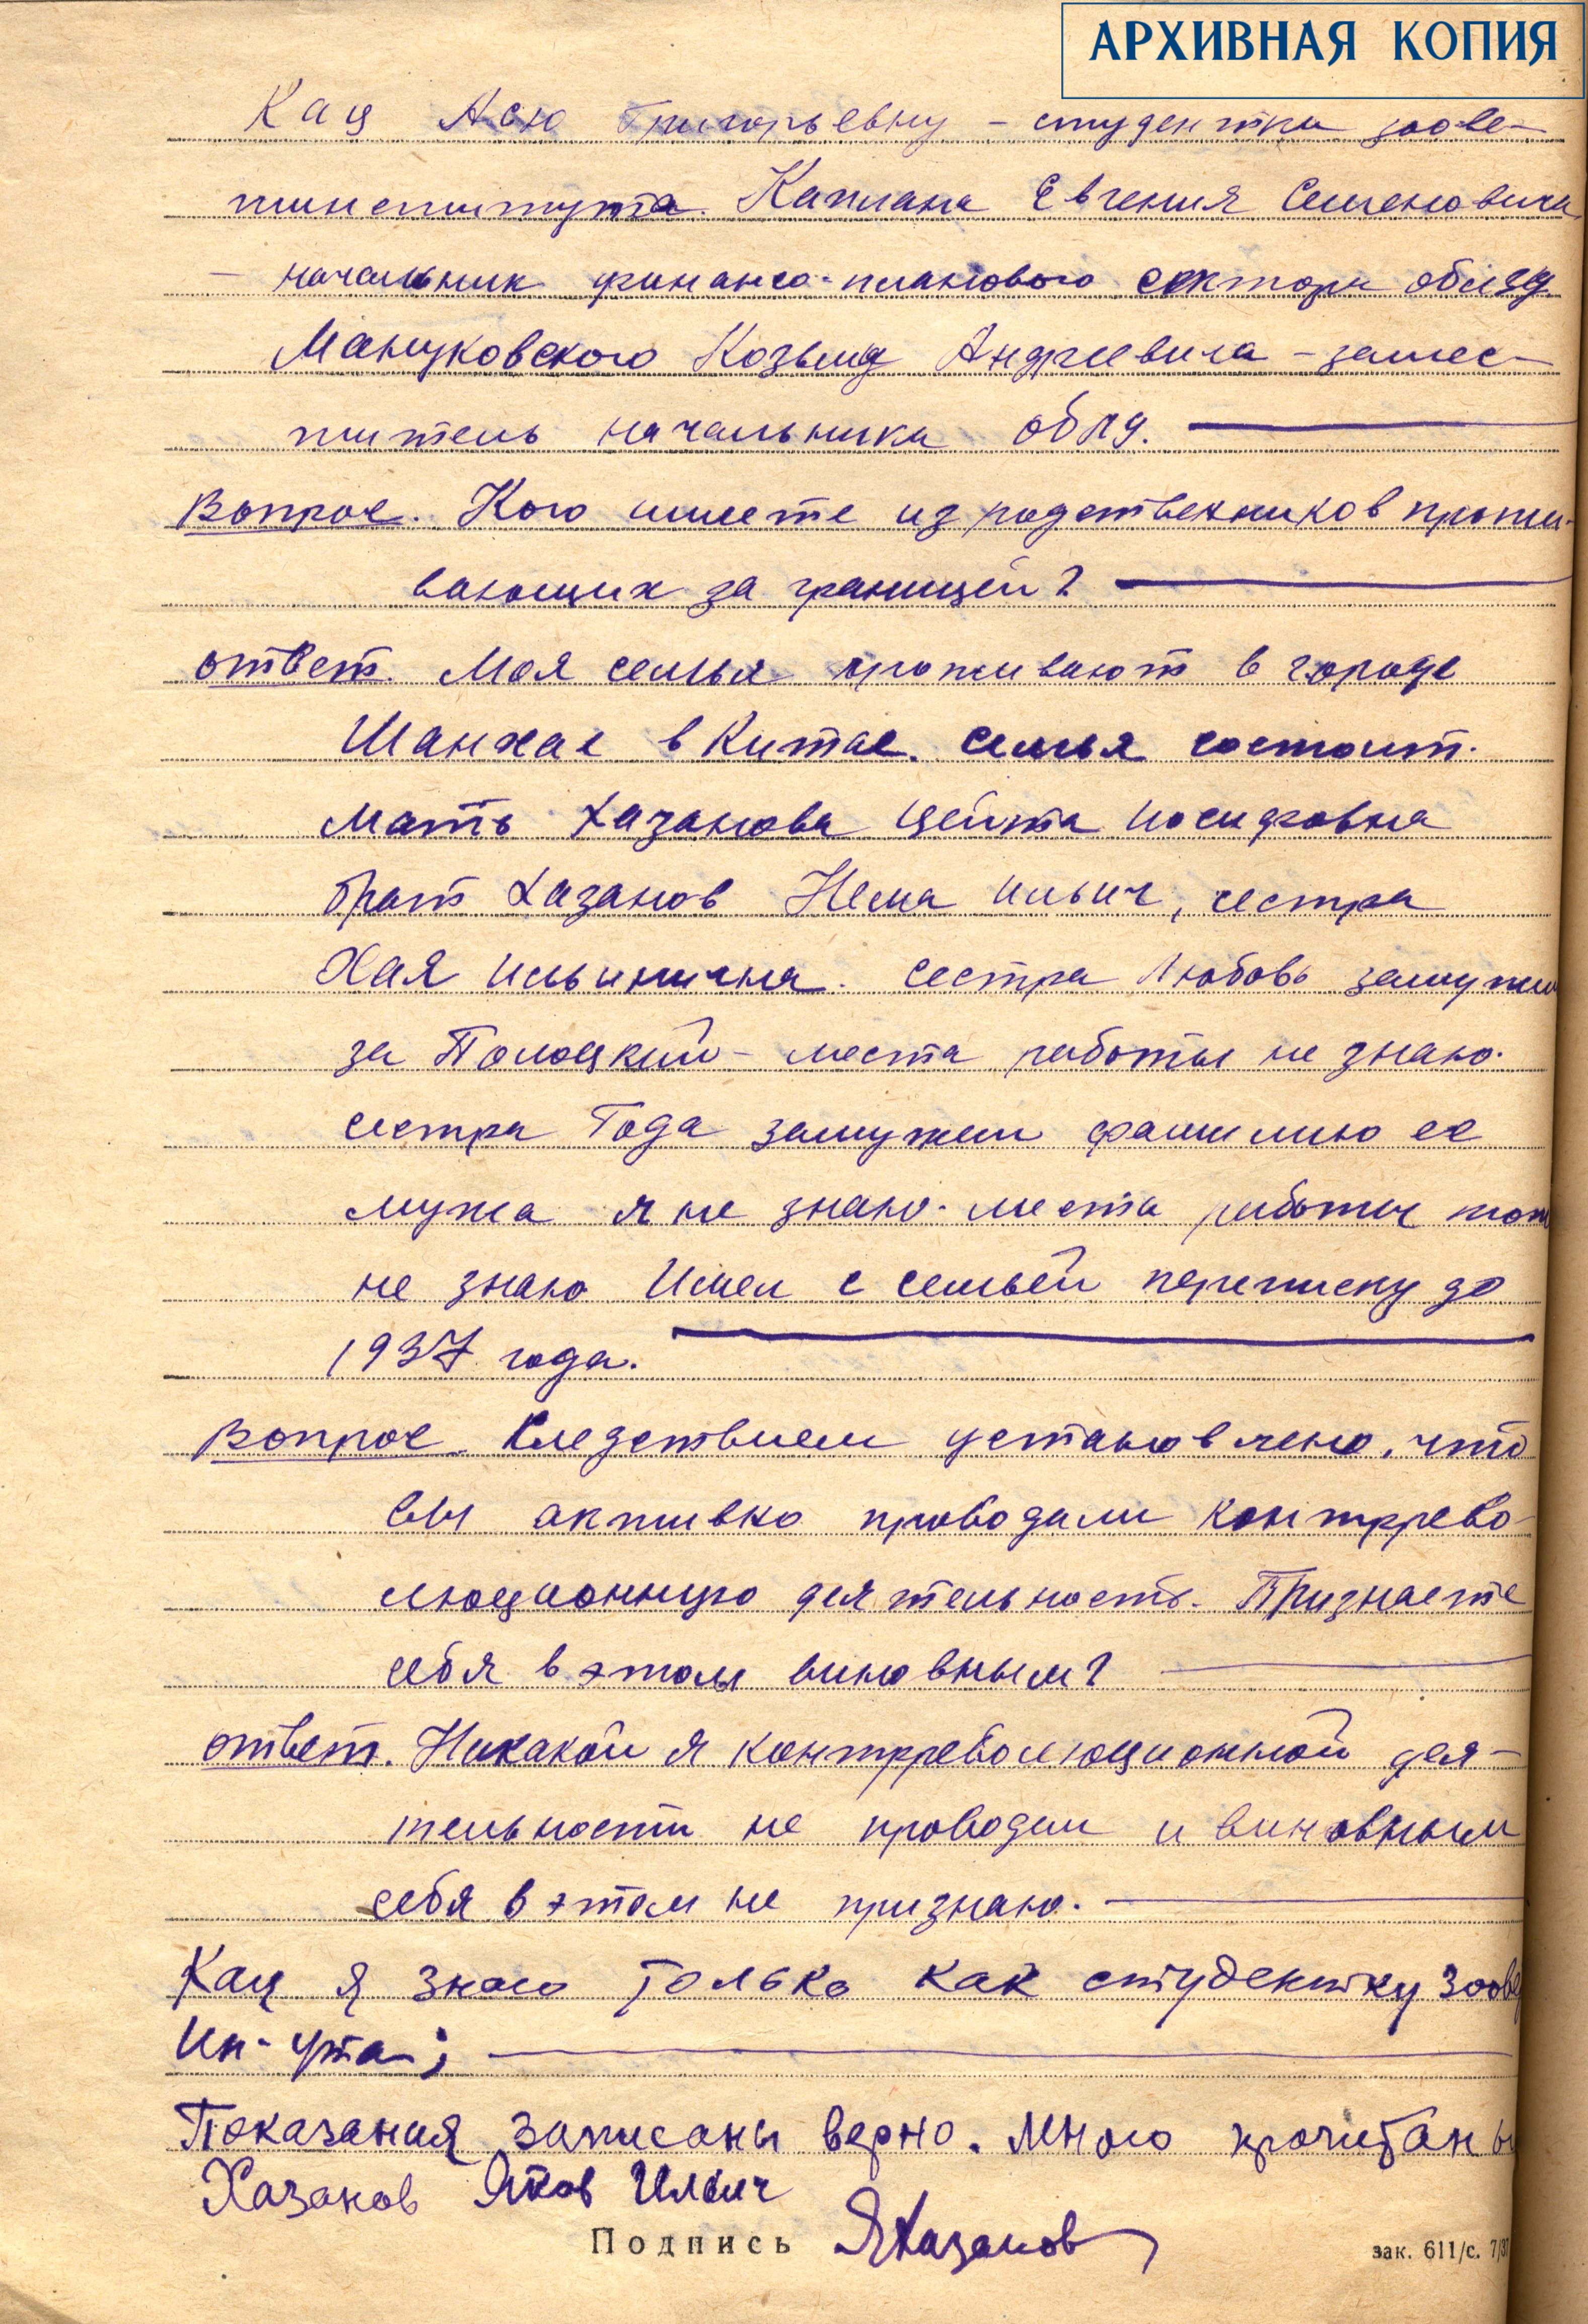 АРХИВНАЯ КОПИЯ
Кац Асю Григорьевну – студентка зоове-
тинститута. Каплана Евгения Семеновича
– начальник финансо-планового сектора облзу
Манцуковского Козьма Андреевича – замес-
титель начальника облзу.
Вопрос. Кого имеете из родственников прожи-
вающих за границей?
ответ. Моя семья проживают в городе
Шанхае в Китае. семья состоит.
мать Хазанова Цейта Иосифовна
брат Хазанов Нема Ильич, сестра
Хая Ильинична. сестра Любовь замужем
за Полоцкий – места работы не знаю.
сестра Года замужем фамилию ее
мужа я не знаю. места работы тож
не знаю Имел с семьей переписку до
1937 года.
Вопрос. Следствием установлено, что
вы активно проводили контррево-
люционную деятельность. Признаете
себя в этом виновным?
ответ. Никакой я контрреволюционной дея-
тельности не проводил и виновным
себя в этом не признаю.
Кац я знаю только как студентку зоовет
Ин-ута;
Показания записаны верно. Мною прочитаны
Хазанов Яков Ильич
Подпись ЯХазанов
зак. 611/с. 7/37